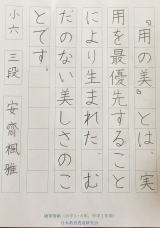 『用の美』とは、実
用を最優先すること
により生まれた、む
だのない美しさのこ
とです。
小六 三段 安齋楓雅